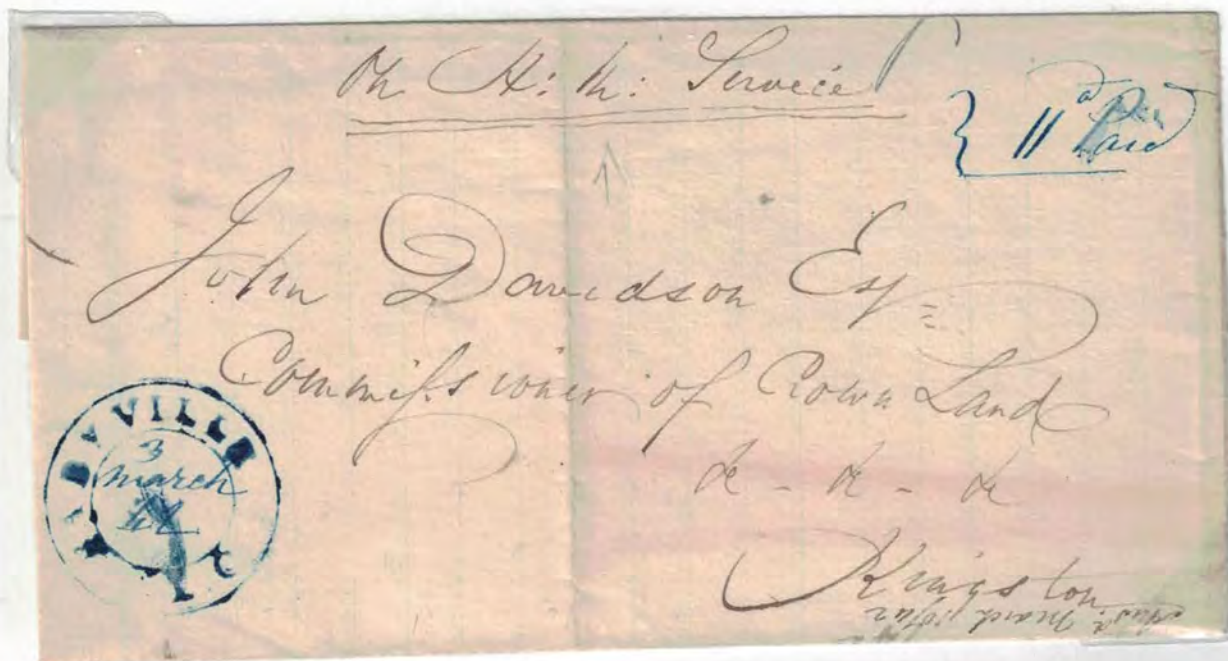 On H: M: Service
11d Paid
John Davidson Esqr
Commissioner of Crown Land
&c - &c - &c
Kingston
3
March
42